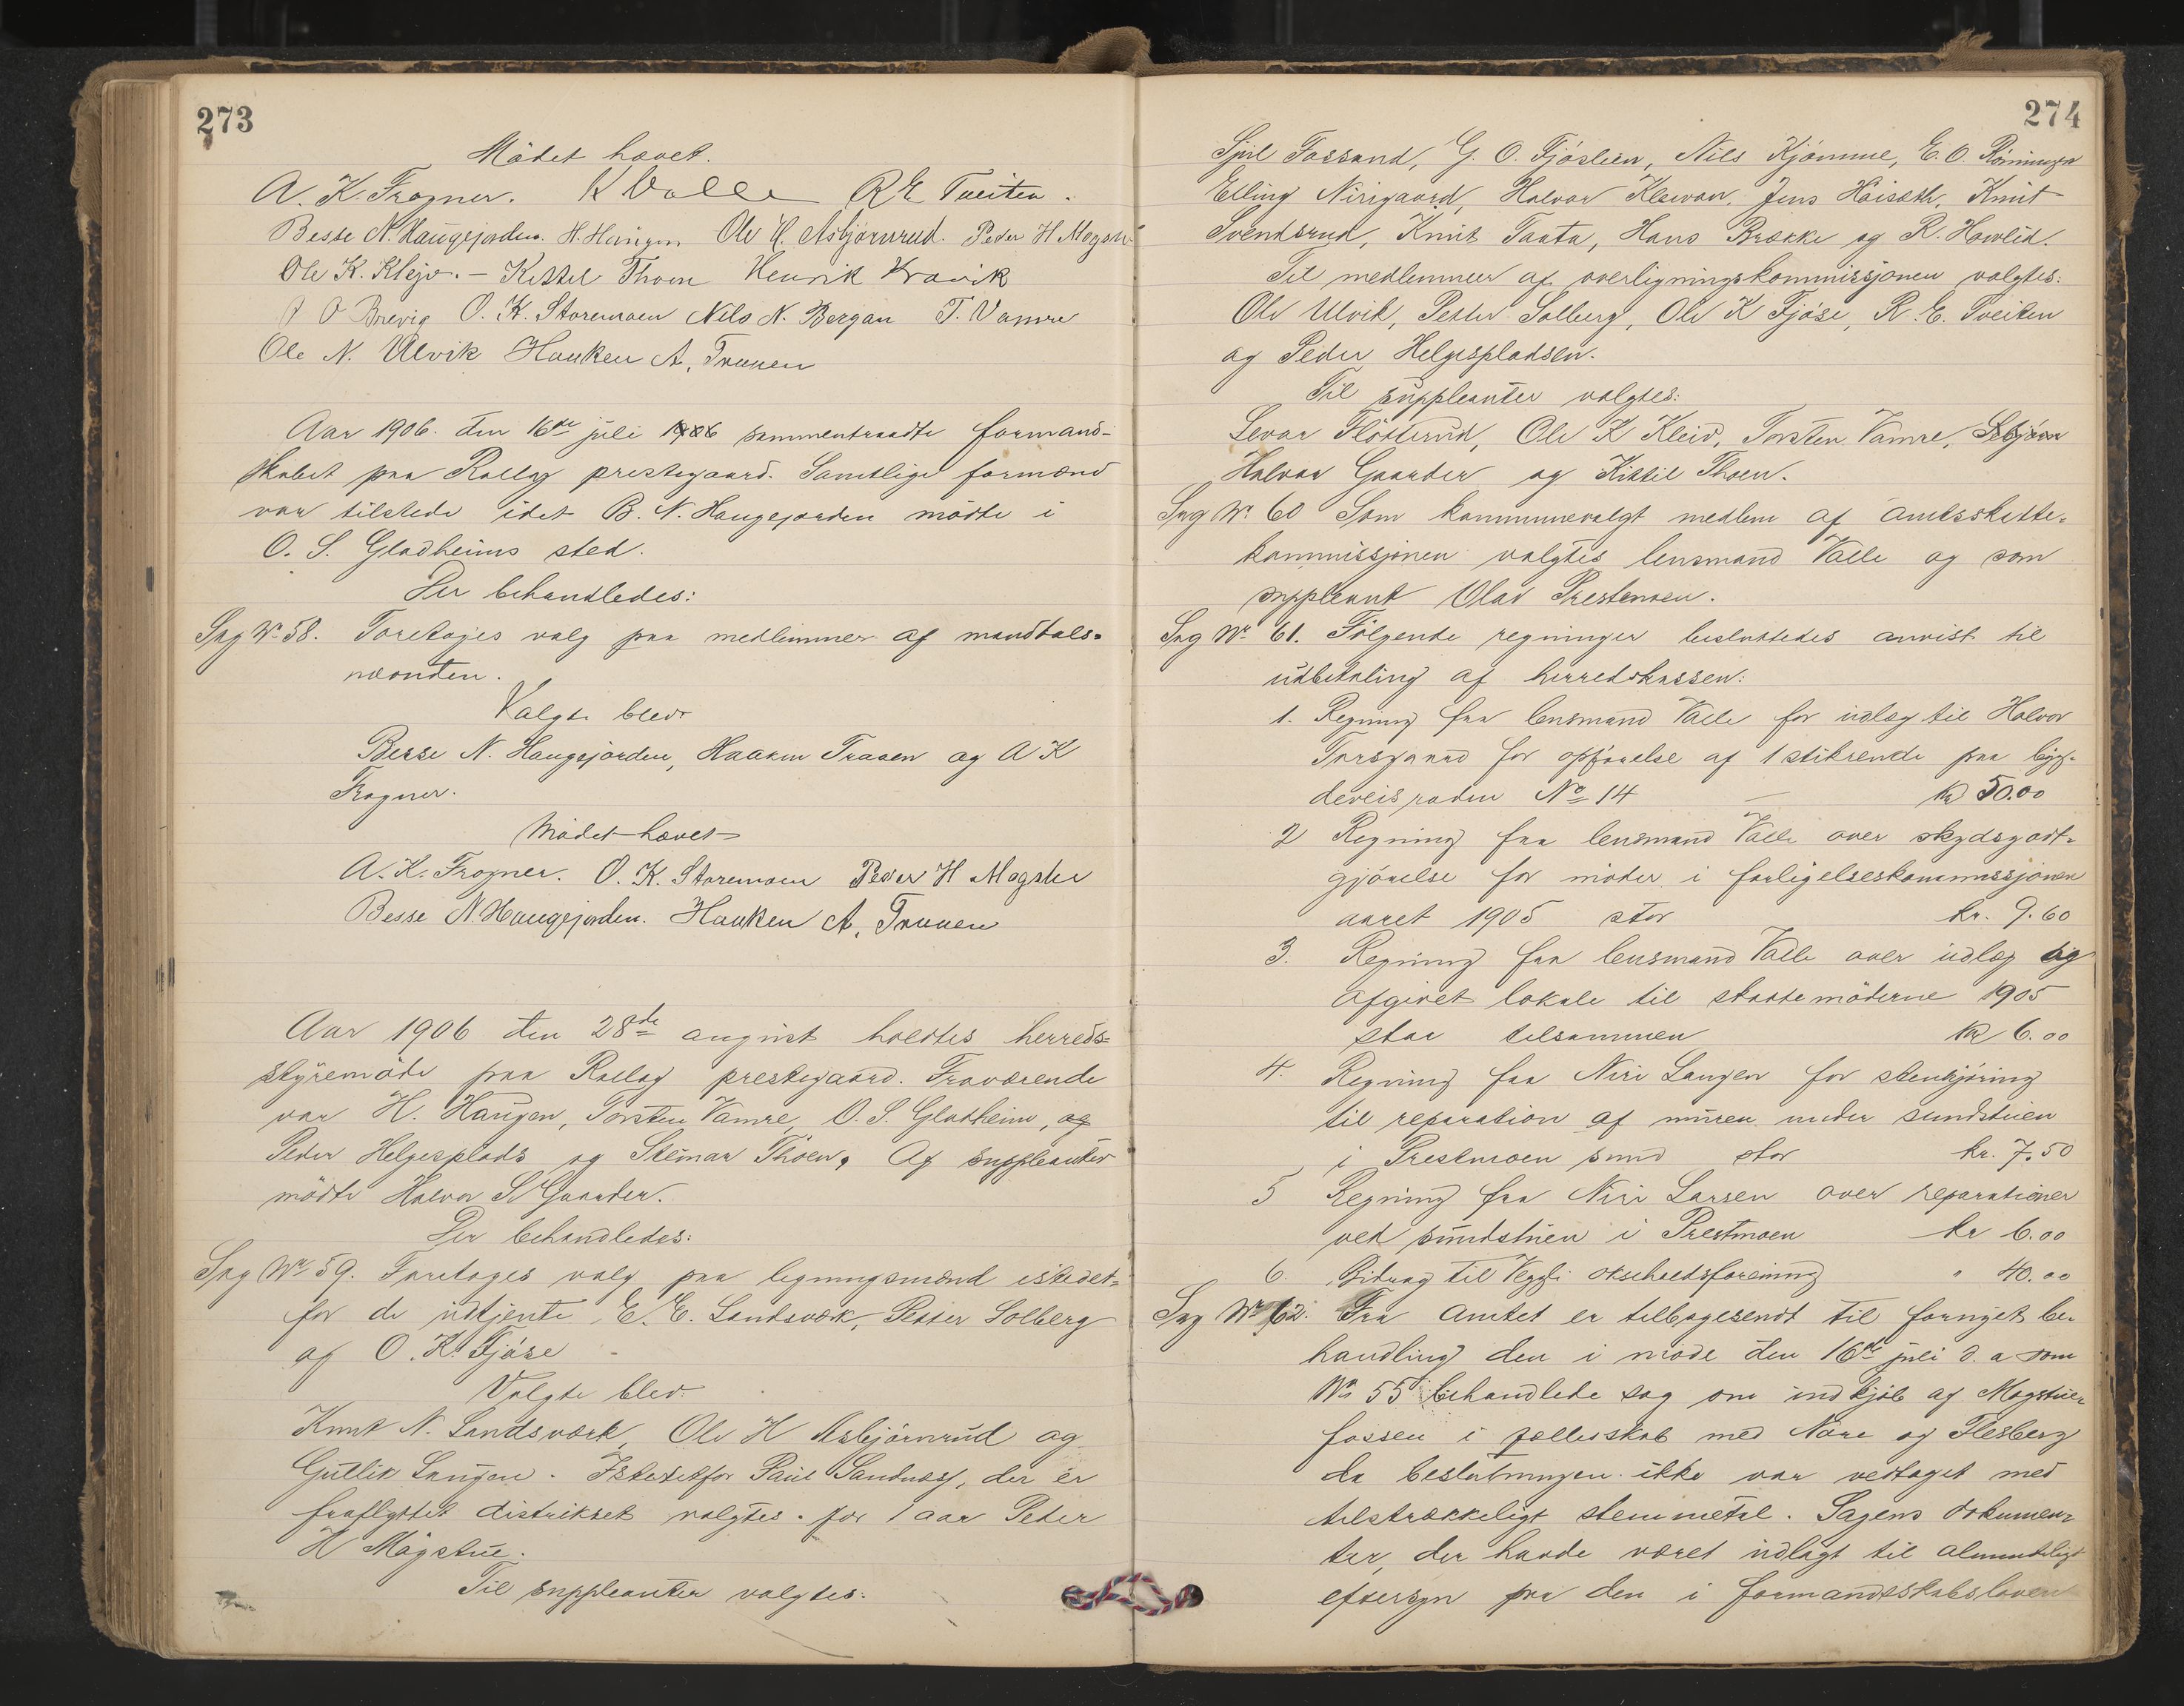 273
Mödet hævet.
A. K. Frogner. K Valle R E Tveiten.
Besse N. Haugejorden. H. Haugen Ole H. Asbjörnrud. Peder H Mogstu
Ole K. Kleiv. – Kittel Thoen Henrik Kravik
O Brevig O. K. Storemoen Nils N. Bergan T. Vamre
Ole N. Ulvik Haaken A. Traaen
Aar 1906. den 16de juli 1906 sammentraadte formand-
skabet paa Rollag prestegaard. Samtlige formænd
var tilstede idet B. N. Haugejorden mödte i
O. S. Gladheims sted.
Der behandledes:
Sag No 58. Foretoges valg paa medlemmer af mandtals-
nævnden.
Valgte blev
Besse N. Haugejorden, Haaken Traaen og A K
Frogner.
Mödet hævet
A. K. Frogner. O. K. Storemoen Peder H Mogstu
Besse N. Haugejorden. Haaken A. Traaen
Aar 1906 den 28de august holdtes herreds-
styremöde paa Rollag prestegaard. Fraværende
var H. Haugen, Torsten Vamre, O. S. Gladheim, og
Peder Helgesplads og Steinar Thoen. Af suppleanter
mödte Halvor S Gaarder.
Der behandledes:
Sag No 59. Foretoges valg paa ligningsmænd istedet-
for de udtjente E. E. Landsværk, Petter Solberg
og O. K. Fjöse
Valgte blev
Knut N. Landsværk, Ole H Asbjörnrud og
Gullik Langen. Istedetfor Paul Sandnæs, der er
fraflyttet distriktet valgtes for 1 aar Peder
H Mogstue.
Til suppleanter valgtes:
274
Fossand, G. O. Fjöslien, Nils Kjömme, E. O.
Elling Nirigaard, Halvor Klevan, Jens Höisæth, Knut
Svendsrud, Knut Taata, Hans Brække og R. Hovlid.
Til medlemmer af overligningskommissjonen valgtes:
Ole Ulvik, Petter Solberg, Ole K Fjöse, R. E. Tveiten
og Peder Helgespladsen.
Til suppleanter valgtes:
Levor Flötterud, Ole K Kleiv, Torsten Vamre,
Halvor Gaarder og Kittil Thoen.
Sag No 60 Som kommunevalgt medlem af amtsskatte-
kommissjonen valgtes lensmand Valle og som
suppleant Olav Prestemoen.
Sag No 61. Fölgende regninger besluttedes anvist til
udbetaling af herredskassen:
1. Regning fra lensmand Valle for udlæg til Halvor
Torsgaard for opförelse af 1 stikrende paa byg-
deveis roden No 14 – kr 50.00
2 Regning fra lensmand Valle over skydsgodt-
gjörelse for möder i forligelseskommissjonen
aaret 1905 stor kr. 9.60
3. Regning fra lensmand Valle over udlæg og
afgivet lokale til skattemöderne 1905
stor tilsammen kr 6.00
4. Regning fra Niri Langen for stenkjöring
til reparation af muren under sundstuen
i Prestmoen sund stor kr. 7.50
5 Regning fra Niri Larsen over reparationer
ved sundstuen i Prestmoen kr 6.00
6. Bidrag til Veggli okseholdsforening " 40.00
Sag No 62. Fra amtet er tilbagesendt til fornyet be-
handling den i möde den 16de juli d. a som
No 55 behandlede sag om indkjöb af Mogstue-
fossen i fællesskab med Nore og Flesberg
da beslutningen ikke var vedtaget med
tilstrækkeligt stemmetal. Sagens dokumen-
ter, der havde været udlagt til almindeligt
eftersyn paa den i formandskabsloven